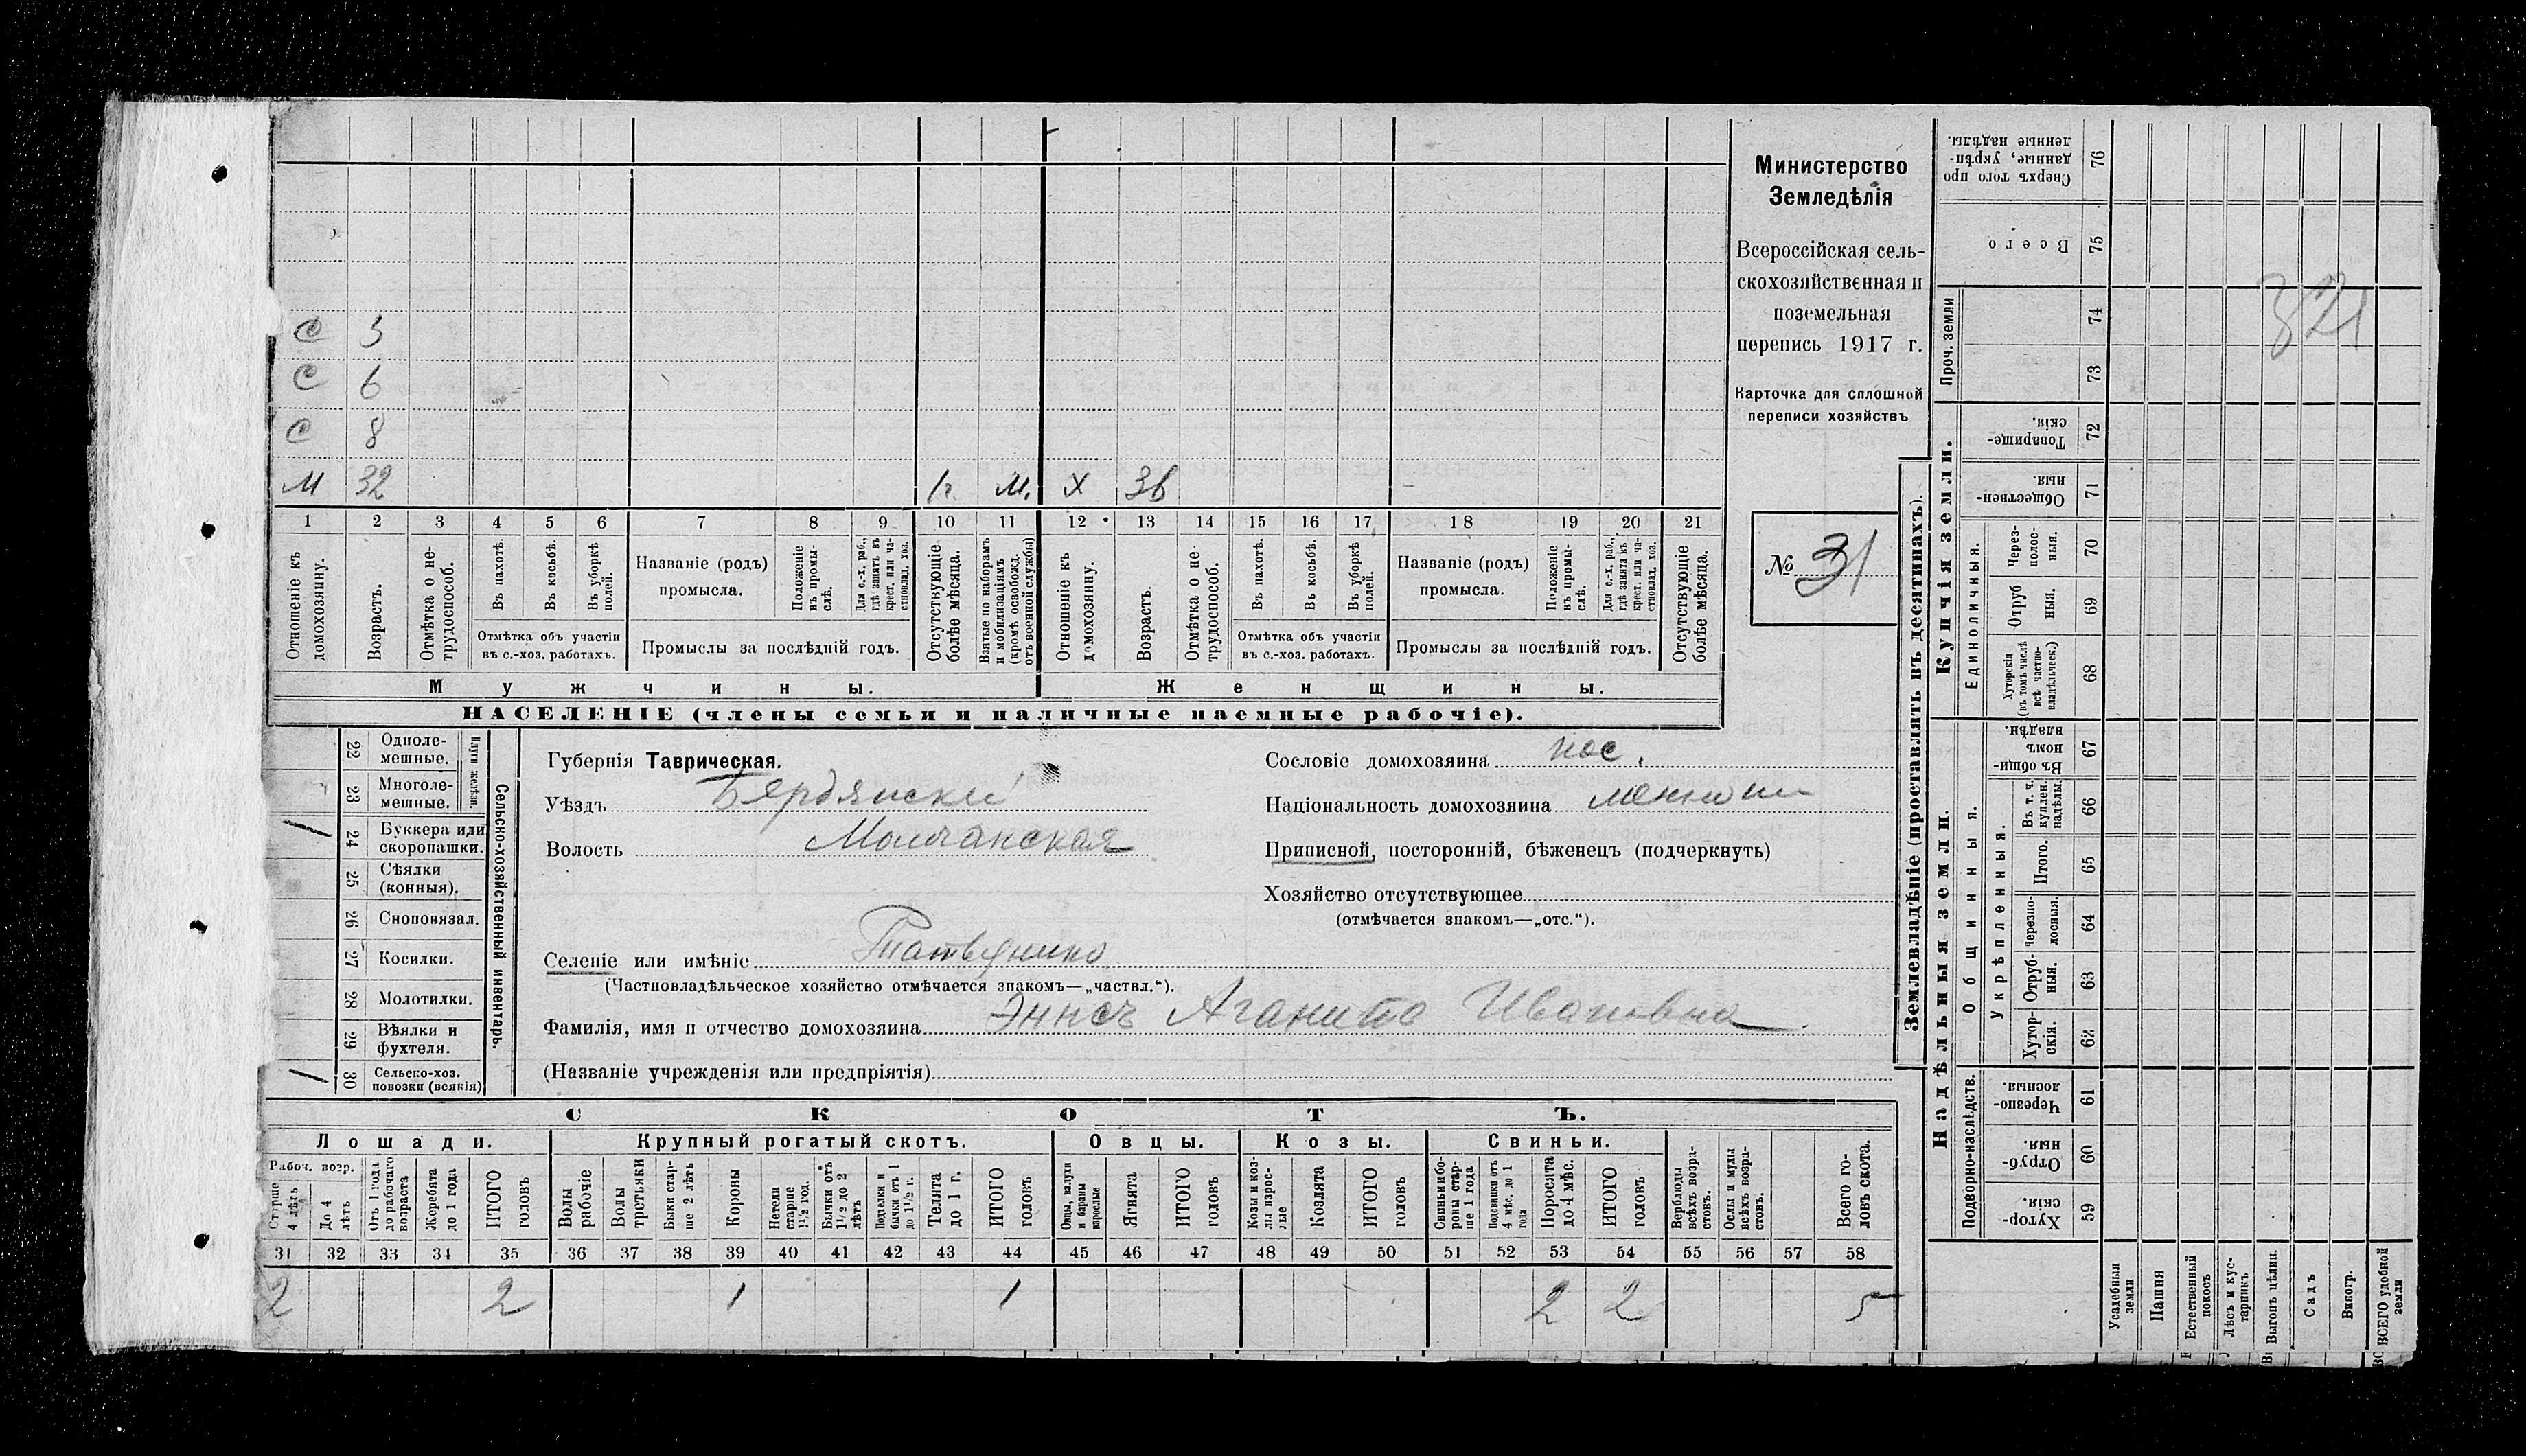 С 3
С 6
С 8
М 32 1г. М. Х 36
1 2 3 4 5 6 7 8 9 10 11 12 13 14 15 16 17 18 19 20 21
Отношеніе къ домохозяину.
Возрастъ.
Отмѣтка о не-трудоспособ.
Въ пахотѣ.
Въ косьбѣ.
Въ уборкѣ полей.
Отмѣтка объ участіи
въ с.-хоз. работахъ.
Названіе (родъ)
промысла.
Положеніе въ промы-слѣ.
Для с.-х. раб., гдѣ занятъ въ крест. или ча-стновлад. хоз.
Промыслы за послѣдній годъ.
Отсутствующіе болѣе мѣсяца.
Взятые по наборамъ и мобилизаціямъ (кромѣ освобожд. отъ военной службы)
Отношеніе къ домохозяину.
Возрастъ.
Отмѣтка о не-трудоспособ.
Въ пахотѣ.
Въ косьбѣ.
Въ уборкѣ полей.
Отмѣтка объ участіи
въ с.-хоз. работахъ.
Названіе (родъ)
промысла.
Положеніе въ промы-слѣ.
Для с.-х. раб., гдѣ занята въ крест. или ча-стновлад. хоз.
Промыслы за послѣдній годъ.
Отсутствующіе болѣе мѣсяца.
Мужчины. Женщины.
НАСЕЛЕНІЕ (члены семьи и наличные наемные рабочіе).
Министерство
Земледѣлія
Всероссійская сель-
скохозяйственная и
поземельная
перепись 1917 г.
Карточка для сплошной
переписи хозяйствъ
№ 31
22 Одноле-мешные.
23 Многоле-мешные.
Плуги желѣзн.
/ 24 Буккера или скоропашки.
25 Сѣялки (конныя).
26 Сноповязал.
27 Косилки.
28 Молотилки.
29 Вѣялки и фухтеля.
/ 30 Сельско-хоз. повозки (всякія)
Сельско-хозяйственный инвентарь.
Губернія Таврическая.
Уѣздъ Бердянскій
Волость Молочанская
Селеніе или имѣніе
(Частновладѣльческое хозяйство отмѣчается знакомъ—„частвл.“).
Фамилія, имя и отчество домохозяина Эннсъ Аганита Ивановна
(Названіе учрежденія или предпріятія)
Сословіе домохозяина пос.
Національность домохозяина
Приписной, посторонній, бѣженецъ (подчеркнуть)
Хозяйство отсутствующее
(отмѣчается знакомъ—„отс.“).
СКОТЪ.
Лошади. Крупный рогатый скотъ. Овцы. Козы. Свиньи.
Рабоч. возр.
Старше 4 лѣтъ
До 4 лѣтъ
Отъ 1 года до рабочаго возраста
Жеребята до 1 года
ИТОГО головъ
Волы рабочіе
Волы третьяки
Быки стар-ше 2 лѣтъ
Коровы
Нетели старше 1½ год.
Бычки отъ 1½ до 2 лѣтъ
Подтелки и бычки отъ 1 до 1½ г.
Телята до 1 г.
ИТОГО головъ
Овцы, валухи и бараны взрослые
Ягнята
ИТОГО головъ
Козы и коз-лы взрос-лые
Козлята
ИТОГО головъ
Свиньи бо-роны стар-ше 1 года
Подсвинки отъ 4 мѣс. до 1 года
Поросята до 4 мѣс.
ИТОГО головъ
Верблюды всѣхъ возра-стовъ.
Ослы и мулы всѣхъ возра-стовъ.
Всего го-ловъ скота.
31 32 33 34 35 36 37 38 39 40 41 42 43 44 45 46 47 48 49 50 51 52 53 54 55 56 57 58
2 2 1 1 2 2 5
Землевладѣніе (проставлять въ десятинахъ).
Купчія земли.
Надѣльныя земли.
Сверхъ того про данные, укрѣп-ленные надѣлы. 76
Всего 75
Проч. земли 74
73
Товарище-скія. 72
Обществен-ныя. 71
Единоличныя.
Через-полос-ныя. 70
Отруб ныя. 69
Хуторскія (въ томъ числѣ всѣ частно-владѣльческ.) 68
Общинныя.
Въ общи-номъ владѣн. 67
Укрѣпленныя.
Въ т. ч. куплен. надѣлы 66
Итого. 65
Черезпо-лосныя. 64
Отруб-ныя. 63
Хутор-скія. 62
Подворно-наслѣдств.
Черезпо-лосныя. 61
Отруб-ныя. 60
Хутор-скія. 59
Усадебныя земли
Пашня
Естественный покосъ
Лѣсъ и кус-тарникъ
Выгонъ цѣлин.
Садъ
Виногр.
ВСЕГО удобной земли
321